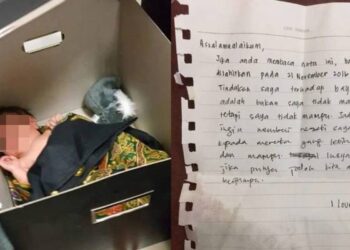 Assalamualaikum,
Jika anda membaca nota ini, ba
dilahirkan pada 21 November 2016
Tindakan saya terhadap bay
adalah bukan saya tidak ma
tetapi saya tidak mampu.
ingin memberi
kepada mereka yang lebih
dan mampu
jika punya jodoh kita a
berjumpa.
I love